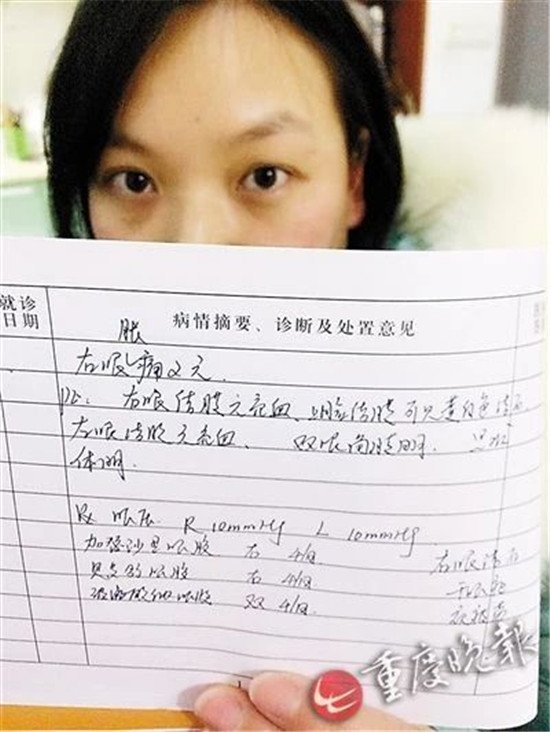 就诊
日期
病情摘要、诊断及处置意见
胀
右眼痛2天.
PE: 右眼结膜充血、上睑结膜可见黄白色结石
左眼结膜无充血、双眼角膜明.
体明.
Rx 眼压 R 10mmHg L 10mmHg
加替沙星眼胶 右 4/日 右眼
眼胶 右 4/日
眼胶 双 4/日
重庆晚报